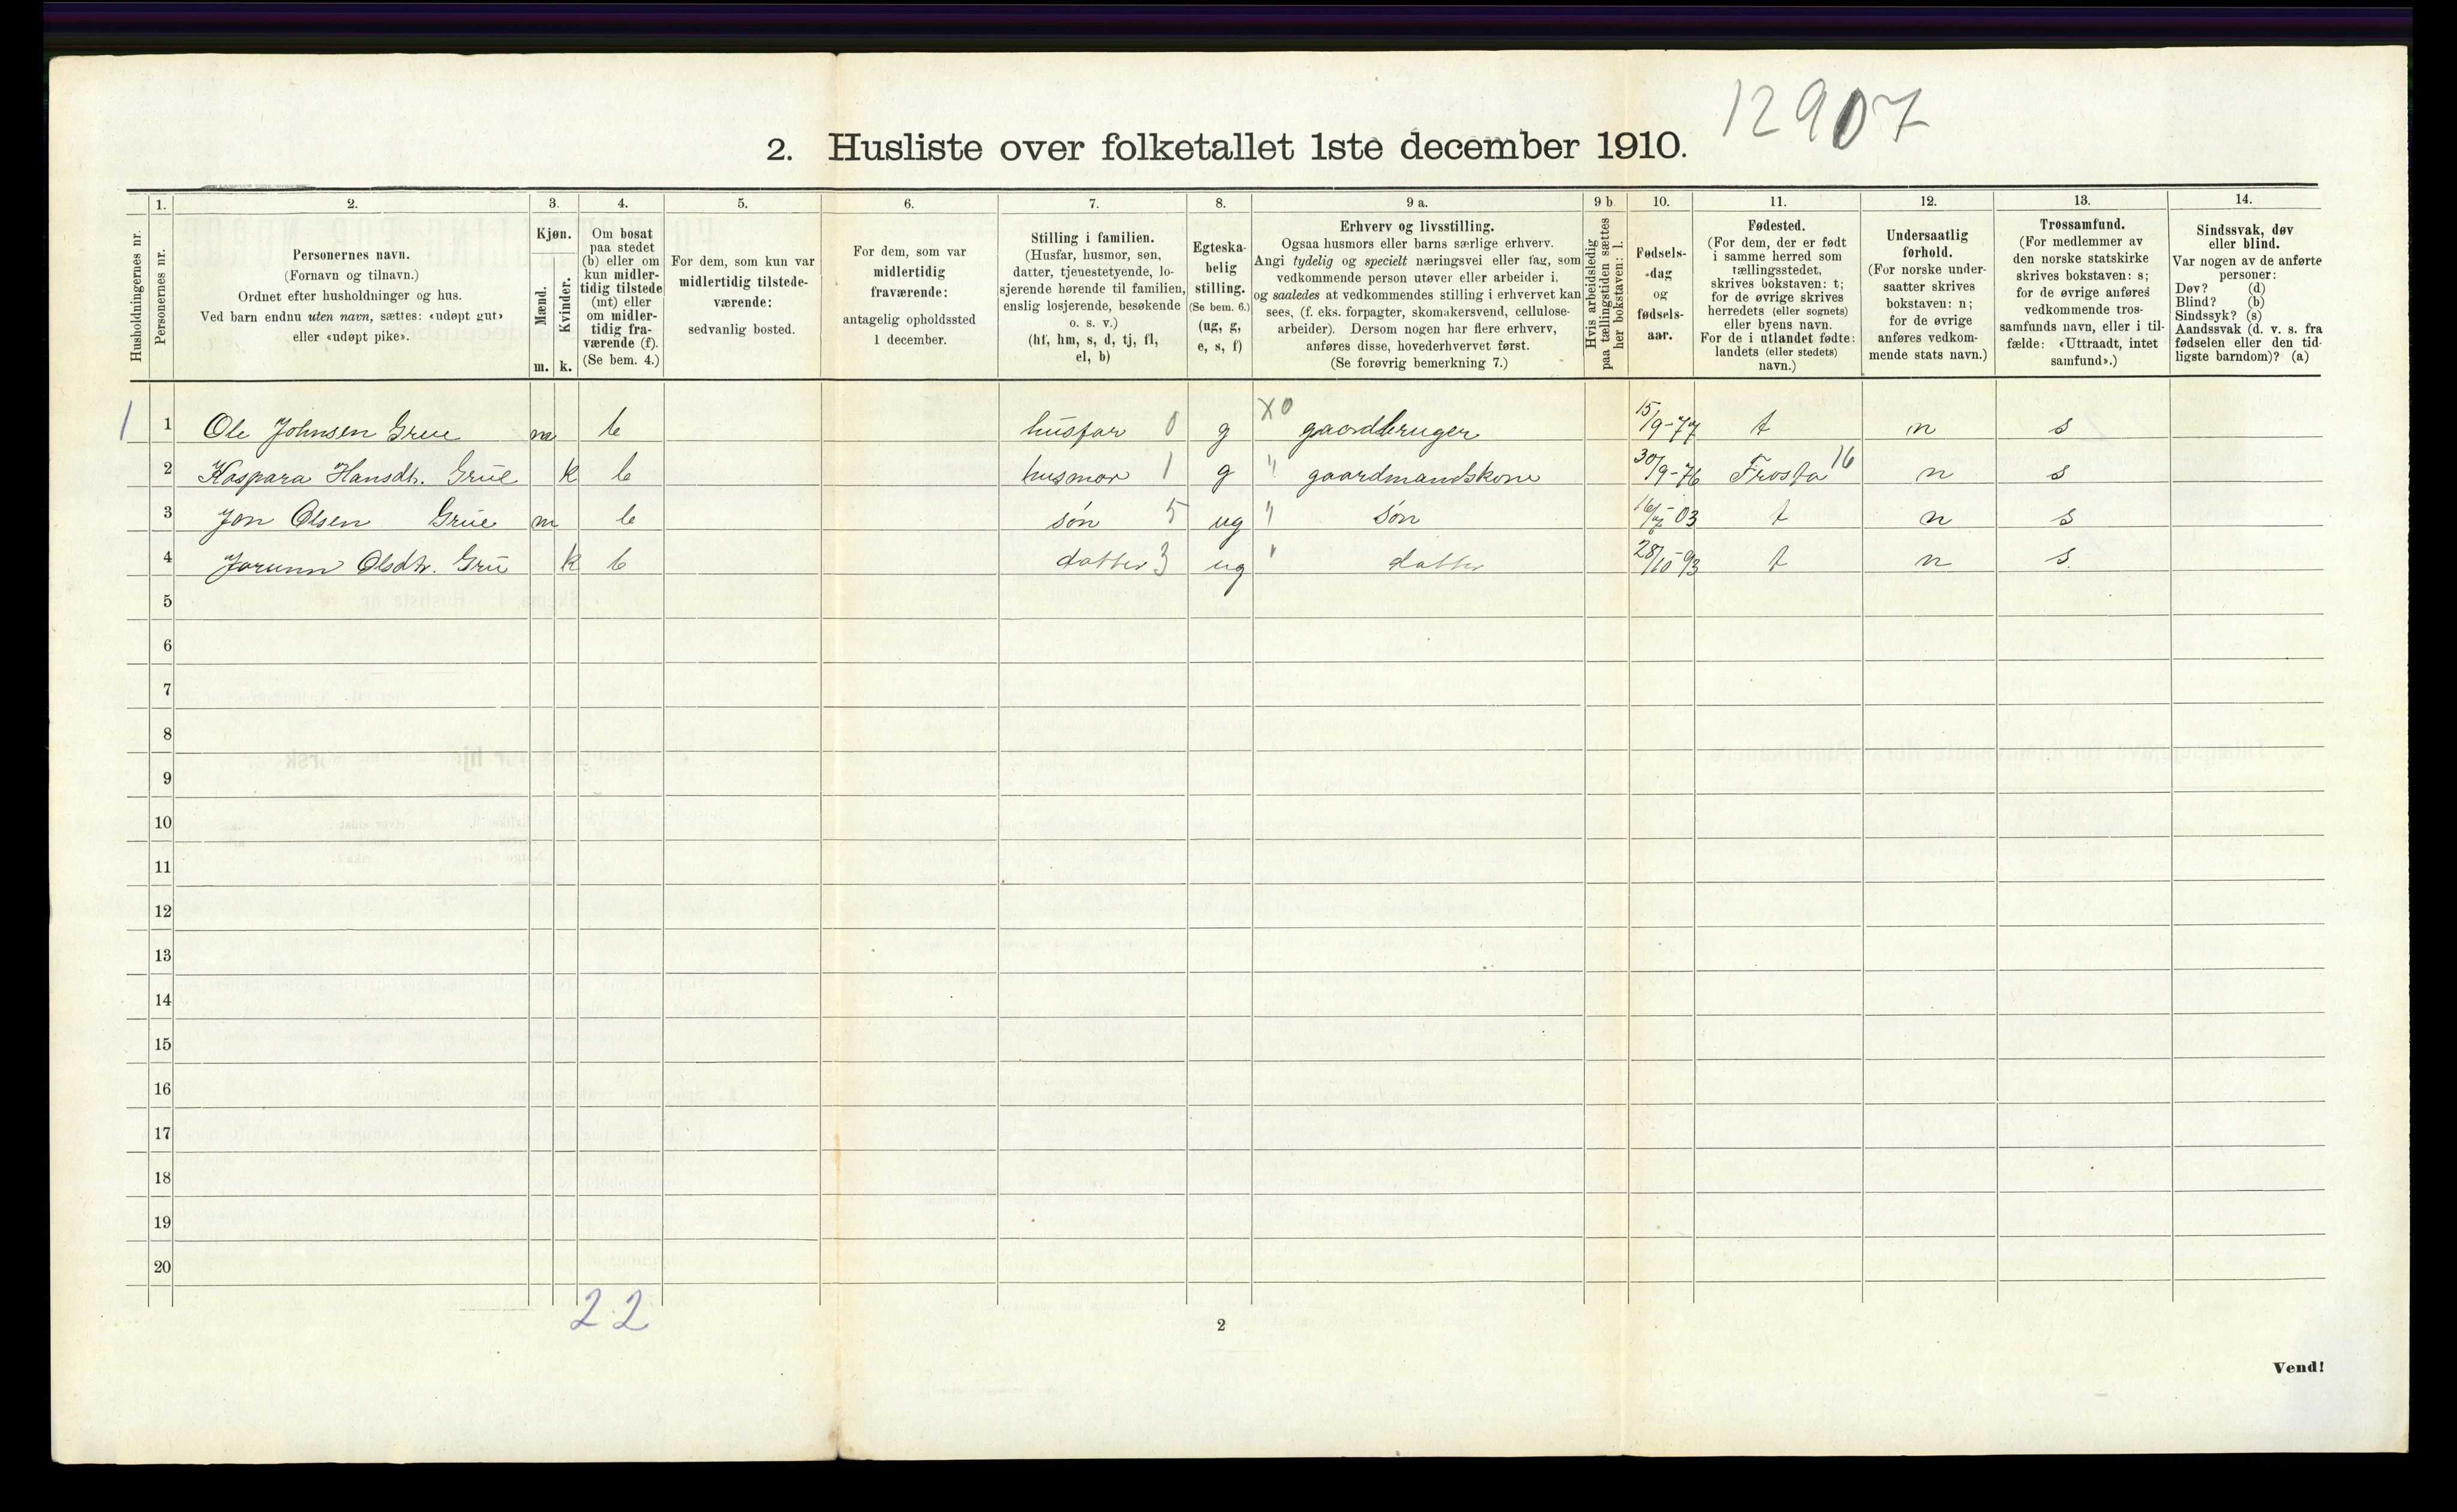 12907
2. Husliste over folketallet 1ste december 1910.
Husholdningernes nr.
1.
Personernes nr.
2.
Personernes navn.
(Fornavn og tilnavn.)
Ordnet efter husholdninger og hus.
Ved barn endnu uten navn, sættes: «udøpt gut»
eller «udøpt pike».
3.
Kjøn.
Mænd.
Kvinder.
m. k.
4.
Om bosat
paa stedet
(b) eller om
kun midler-
tidig tilstede
(mt) eller
om midler-
tidig fra-
værende (f).
(Se bem. 4.)
5.
For dem, som kun var
midlertidig tilstede-
værende:
sedvanlig bosted.
6.
For dem, som var
midlertidig
fraværende:
antagelig opholdssted
1 december.
7.
Stilling i familien.
(Husfar, husmor, søn,
datter, tjenestetyende, lo-
sjerende hørende til familien,
enslig losjerende, besøkende
o. s. v.)
(hf, hm, s, d, tj, fl,
el, b)
8.
Egteska-
belig
stilling.
(Se bem. 6.)
(ug, g,
e, s, f)
9 a.
Erhverv og livsstilling.
Ogsaa husmors eller barns særlige erhverv.
Angi tydelig og specielt næringsvei eller fag, som
vedkommende person utøver eller arbeider i,
og saaledes at vedkommendes stilling i erhvervet kan
sees, (f. eks. forpagter, skomakersvend, cellulose-
arbeider). Dersom nogen har flere erhverv,
anføres disse, hovederhvervet først.
(Se forøvrig bemerkning 7.)
9 b
Hvis arbeidsledig
paa tællingstiden sættes
her bokstaven: l.
10.
Fødsels-
dag
og
fødsels-
aar.
11.
Fødested.
(For dem, der er født
i samme herred som
tællingsstedet,
skrives bokstaven: t;
for de øvrige skrives
herredets (eller sognets)
eller byens navn.
For de i utlandet fødte:
landets (eller stedets)
navn.)
12.
Undersaatlig
forhold.
(For norske under-
saatter skrives
bokstaven: n;
for de øvrige
anføres vedkom-
mende stats navn.)
13.
Trossamfund.
(For medlemmer av
den norske statskirke
skrives bokstaven: s;
for de øvrige anføres
vedkommende tros-
samfunds navn, eller i til-
fælde: «Uttraadt, intet
samfund».)
14.
Sindssvak, døv
eller blind.
Var nogen av de anførte
personer:
Døv? (d)
Blind? (b)
Sindssyk? (s)
Aandssvak (d. v. s. fra
fødselen eller den tid-
ligste barndom)? (a)
1 1 Ole Johnsen Grue m b husfar 0 g X0 gaardbruger 15/9-77 t n s
2 Kaspara Hansdtr. Grue k b husmor 1 g " gaardmandskone 30/9-76 Frosta 16 n s
3 Jon Olsen Grue m b søn 5 ug " søn 03 t n s
4 Jorunn Olsdtr. Gru k b datter 3 ug " datter 28/10-93 t n s.
5
6
7
8
9
10
11
12
13
14
15
16
17
18
19
20
2 2
2
Vend!